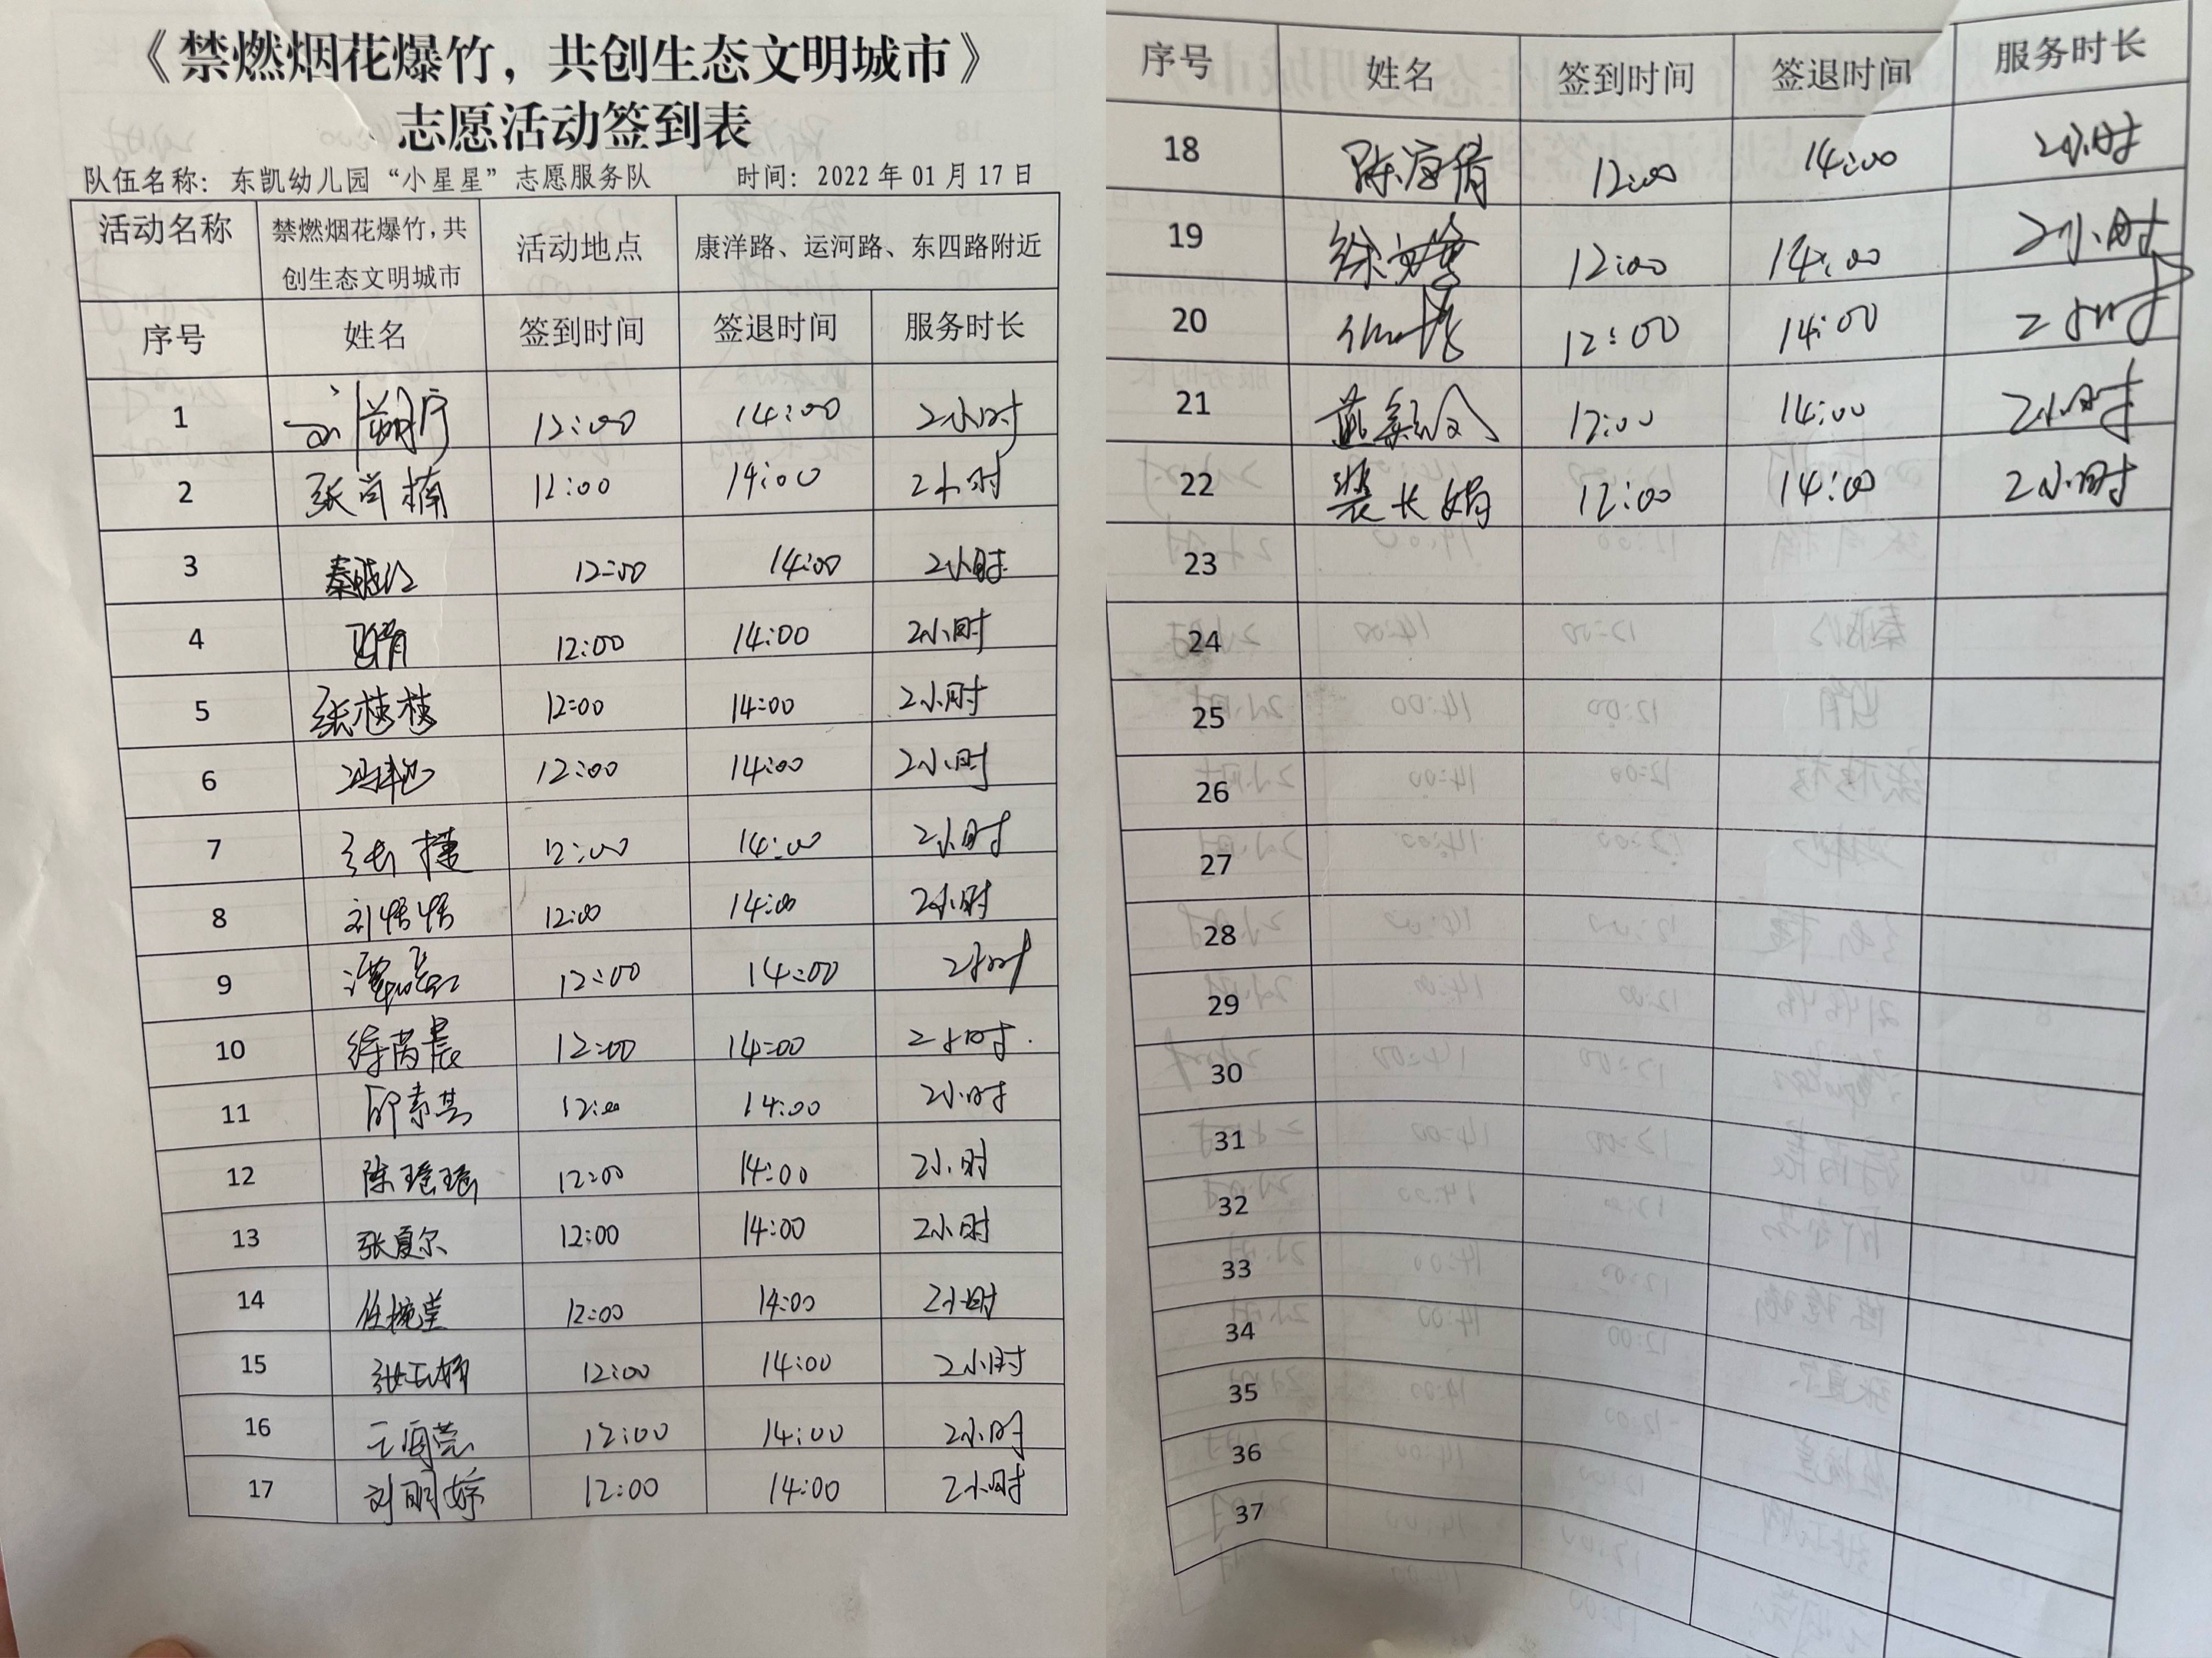 《禁燃烟花爆竹，共创生态文明城市》
志愿活动签到表
队伍名称：东凯幼儿园“小星星”志愿服务队 时间：2022年01月17日
活动名称 禁燃烟花爆竹，共 活动地点 康洋路、运河路、东四路附近
创生态文明城市
序号 姓名 签到时间 签退时间 服务时长
1 12:00 14:00 2小时
2 张尚楠 12:00 14:00 2小时
3 12:00 14:00 2小时
4 12:00 14:00 2小时
5 12:00 14:00 2小时
6 12:00 14:00 2小时
7 张捷 12:00 14:00 2小时
8 12:00 14:00 2小时
9 12:00 14:00 2小时
10 徐茵晨 12:00 14:00 2小时
11 邱素芸 12:00 14:00 2小时
12 陈瑶瑶 12:00 14:00 2小时
13 张夏尔 12:00 14:00 2小时
14 12:00 14:00 2小时
15 12:00 14:00 2小时
16 12:00 14:00 2小时
17 刘丽婷 12:00 14:00 2小时
序号 姓名 签到时间 签退时间 服务时长
18 12:00 14:00 2小时
19 12:00 14:00 2小时
20 12:00 14:00 2小时
21 12:00 14:00 2小时
22 裴长娟 12:00 14:00 2小时
23
24
25
26
27
28
29
30
31
32
33
34
35
36
37